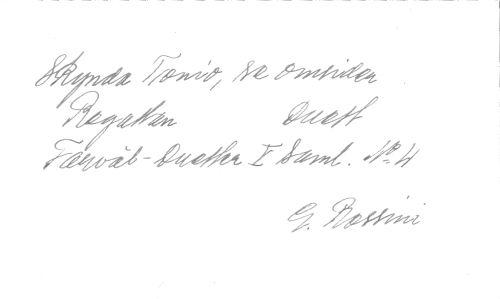 Skynda Tonio, se omsider
Regattan Duett
Farväl-Duetter I Saml. No 4
G. Rossini